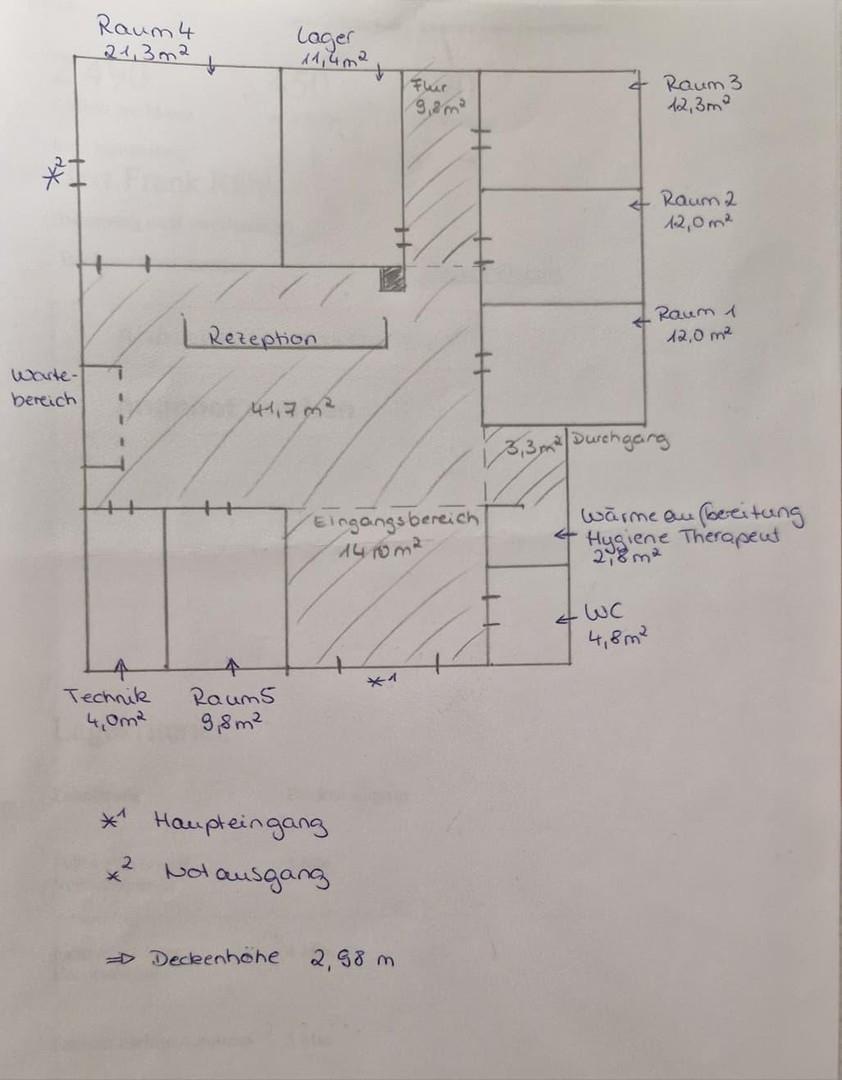 Raum 4
21,3m²
Lager
11,4m²
Flur
9,8m²
Raum 3
12,3m²
*²
Raum 2
12,0m²
Raum 1
12,0 m²
Rezeption
Warte-
bereich
41,7 m²
3,3m²
Durchgang
Eingangsbereich
14,0m²
Wärmeaufbereitung
Hygiene Therapeut
2,8m²
WC
4,8m²
*1
Technik
4,0m²
Raum5
9,8m²
*1 Haupteingang
*2 Notausgang
⇒ Deckenhöhe 2,98 m